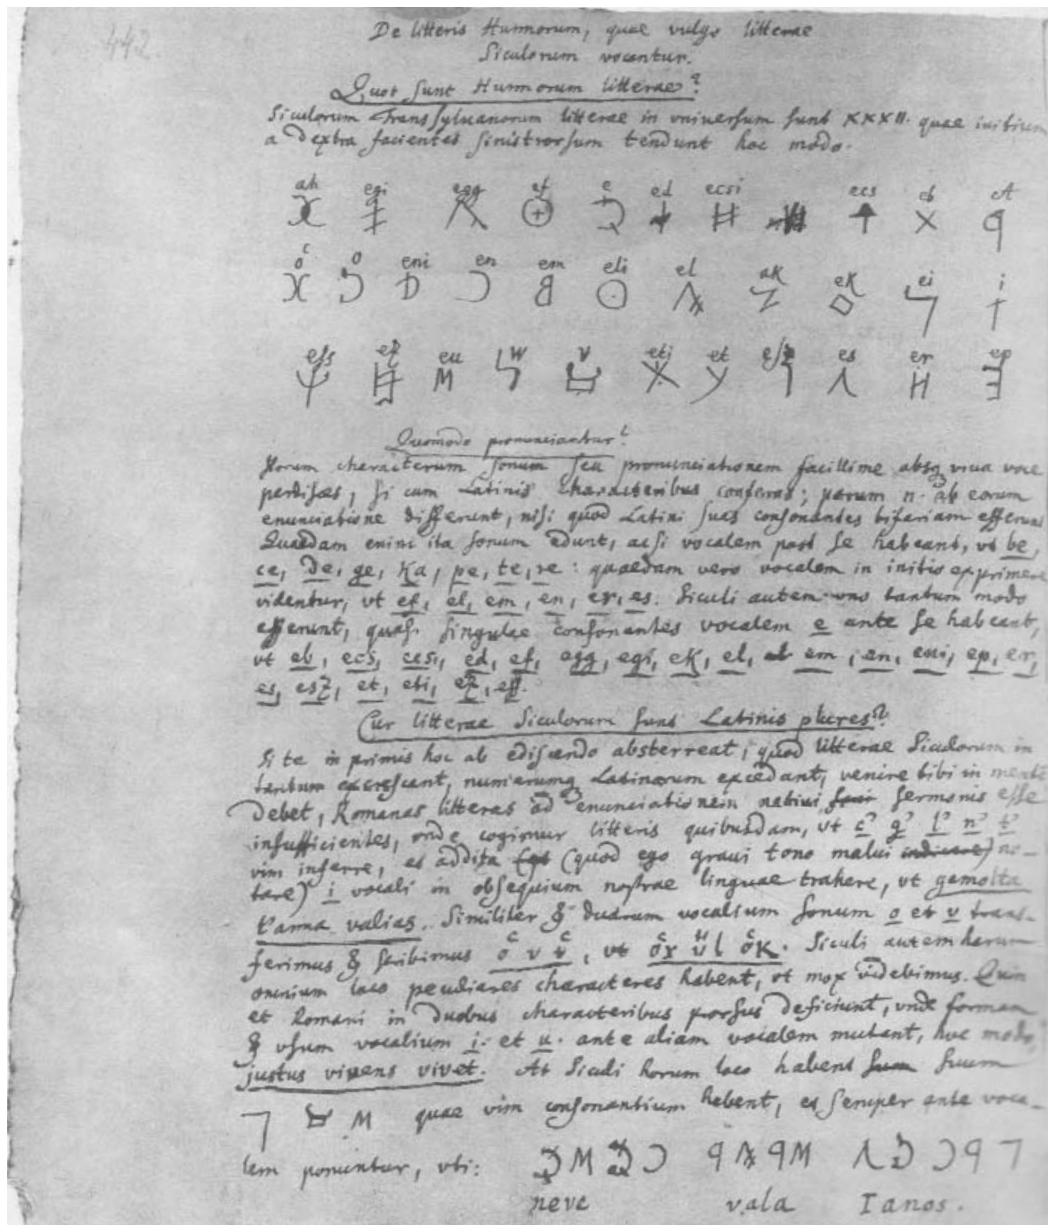 442.
De litteris Hunnorum, quae vulgo litterae
Siculorum vocantur.
Quot sunt Hunnorum litterae?
Siculorum Transsyluanorum litterae in vniversum sunt XXXII. quae initium
a dextra facientes sinistrorsum tendunt hoc modo.
ah egi egg ef e ed ecsi ecs eb A
ö o eni en em eli el ak ek ei i
ess ez eu w v eti et esz es er ep
Quomodo pronunciantur?
Horum characterum sonum seu pronunciationem facillime absq viva voce
perdisces, si cum Latinis characteribus conferas; parum n. ab eorum
enunciatione differunt, nisi quod Latini suas consonantes bifariam efferunt
Quaedam enim ita sonum edunt, acsi vocalem post se habeant, vt be,
ce, de, ge, ka, pe, te, ve: quaedam vero vocalem in initio exprimere
videntur, vt ef, el, em, en, er, es. Siculi autem vno tantum modo
efferunt, quasi singulae consonantes vocalem e ante se habeant,
vt eb, ecs, ecsi, ed, ef, egg, egi, ek, el, em, en, eni, ep, er,
es, esz, et, eti, ez, ess.
Cur litterae Siculorum sunt Latinis plures?
Si te in primis hoc ab ediscendo absterreat, quod litterae Siculorum in
tantum excrescant, numerumq Latinorum excedant, venire tibi in mente
debet, Romanas litteras ad enunciationem nativi sermonis esse
insufficientes, vnde cogimur litteris quibusdam, vt c' g' l' n' t'
vim inferre, et addita (quod ego gravi tono malui no-
tare) i vocali in obsequium nostrae linguae trahere, vt gemolta
tanna valias. Similiter & duarum vocalium sonum o et v trans-
ferimus & scribimus ö v ü, vt öx ül ök. Siculi autem harum
omnium loco peculiares characteres habent, vt mox videbimus. Quin
et Romani in duobus characteribus prorsus deficiunt, vnde formam
& vsum vocalium i. et u. ante aliam vocalem mutant, hoc modo,
justus vivens vivet. At Siculi horum loco habent suum
quae vim consonantium habent, et semper ante voca-
lem ponuntur, vti:
neve vala Ianos.